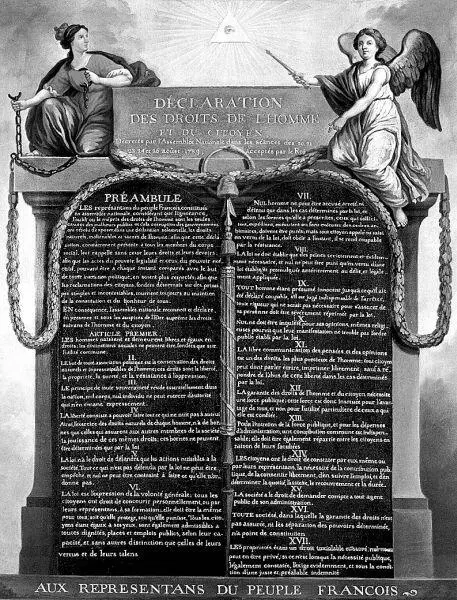 DÉCLARATION
DES DROITS DE L'HOMME
ET DU CITOYEN,
Décrétés par l'Assemblée Nationale dans les séances des 20, 21
23, 24 et 26 août 1789, Acceptés par le Roi
PRÉAMBULE
LES représentans du peuple François, constitués
en assemblée nationale, considérant que l'ignorance,
l'oubli ou le mépris des droits de l'homme sont les seules
EN conséquence, l'assemblée nationale reconnoit et déclare,
en présence et sous les auspices de l'Être suprême les droits
suivans de l'homme et du citoyen.
ARTICLE PREMIER.
LES hommes naissent et demeurent libres et égaux en
droits, les distinctions sociales ne peuvent être fondées que sur
l'utilité commune.
II.
LE but de toute association politique est la conservation des droits
naturels et imprescriptibles de l'homme; ces droits sont la liberté,
la propriété, la sureté, et la résistance à l'oppression.
III.
LE principe de toute souveraineté réside essentiellement dans
la nation, nul corps, nul individu ne peut exercer d'autorité
qui n'en émane expressément.
IV.
LA liberté consiste à pouvoir faire tout ce qui ne nuit pas à autrui
Ainsi, l'exercice des droits naturels de chaque homme, n'a de bor-
nes que celles qui assurent aux autres membres de la société
la jouissance de ces mêmes droits; ces bornes ne peuvent
être déterminées que par la loi.
V.
LA loi n'a le droit de défendre que les actions nuisibles à la
société. Tout ce qui n'est pas défendu par la loi ne peut être
empêché, et nul ne peut être contraint à faire ce qu'elle n'or-
donne pas.
VI.
LA loi est l'expression de la volonté générale; tous les
citoyens ont droit de concourir personnellement, ou par
leurs représentans, à sa formation; elle doit être la même
pour tous, soit qu'elle protege, soit qu'elle punisse. Tous les cito-
yens étant égaux à ses yeux, sont également admissibles à
toutes dignités, places et emplois publics, selon leur ca-
pacité, et sans autres distinction que celles de leurs
vertus et de leurs talens.
VII.
NUL homme ne peut être accusé, arreté, ni
détenu que dans les cas déterminés par la loi, et
selon les formes qu'elle a prescrites, ceux qui sollici-
VIII.
LA loi ne doit établir que des peines strictement et évidem-
ment nécessaires, et nul ne peut être puni qu'en vertu d'une
loi établie et promulguée antérieurement au délit, et légale-
ment appliquée.
IX.
TOUT homme étant présumé innocent jusqu'à ce qu'il ait
été déclaré coupable, s'il est jugé indispensable de l'arrêter,
toute rigueur qui ne serait pas nécessaire pour s'assurer de
sa personne doit être sévèrement réprimée par la loi.
X.
NUL ne doit être inquiété pour ses opinions, mêmes religi-
euses pourvu que leur manifestation ne trouble pas l'ordre
public établi par la loi.
XI.
LA libre communication des pensées et des opinions
est un des droits les plus précieux de l'homme; tout citoyen
peut donc parler, écrire, imprimer librement, sauf à ré-
pondre de l'abus de cette liberté dans les cas déterminés
par la loi.
XII.
LA garantie des droits de l'homme et du citoyen nécessite
une force publique; cette force est donc instituée pour l'avan-
tage de tous, et non pour l'utilité particulière de ceux à qui
elle est confiée.
XIII.
POUR l'entretien de la force publique, et pour les dépenses
d'administration, une contribution commune est indispen-
sable; elle doit être également répartie entre les citoyens en
raison de leurs facultés.
XIV.
LES citoyens ont le droit de constater par eux même ou
par leurs représentans, la nécessité de la contribution publi-
que, de la consentir librement, d'en suivre l'emploi, et d'en
déterminer la quotité, l'assiette, le recouvrement et la durée.
XV.
LA société a le droit de demander compte à tout agent
public de son administration.
XVI.
TOUTE société, dans laquelle la garantie des droits n'est
pas assurée, ni les séparation des pouvoirs déterminée,
n'a point de constitution
XVII.
LES propriétés étant un droit inviolable et sacré, nul ne
peut en être privé, si ce n'est lorsque la nécessité publique,
légalement constatée, l'exige évidemment, et sous la condi-
tion d'une juste et préalable indemnité
AUX REPRESENTANS DU PEUPLE FRANCOIS